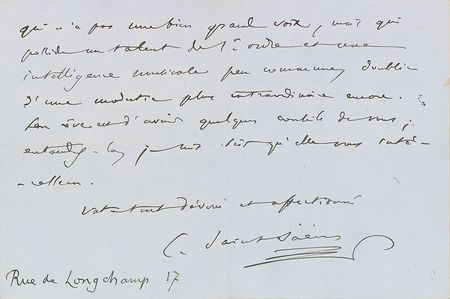 qui n'a pas une bien grande voix, mais qui
possède un talent de 1er ordre et une
intelligence musicale peu commune, doublée
d'une modestie plus extraordinaire encore.
Son rêve est d'avoir quelques conseils de vous,
entendez-la, je suis sûr qu'elle vous inté-
-ressera.
Votre tout dévoué et affectionné
C. Saint-Saëns
Rue de Longchamp 17